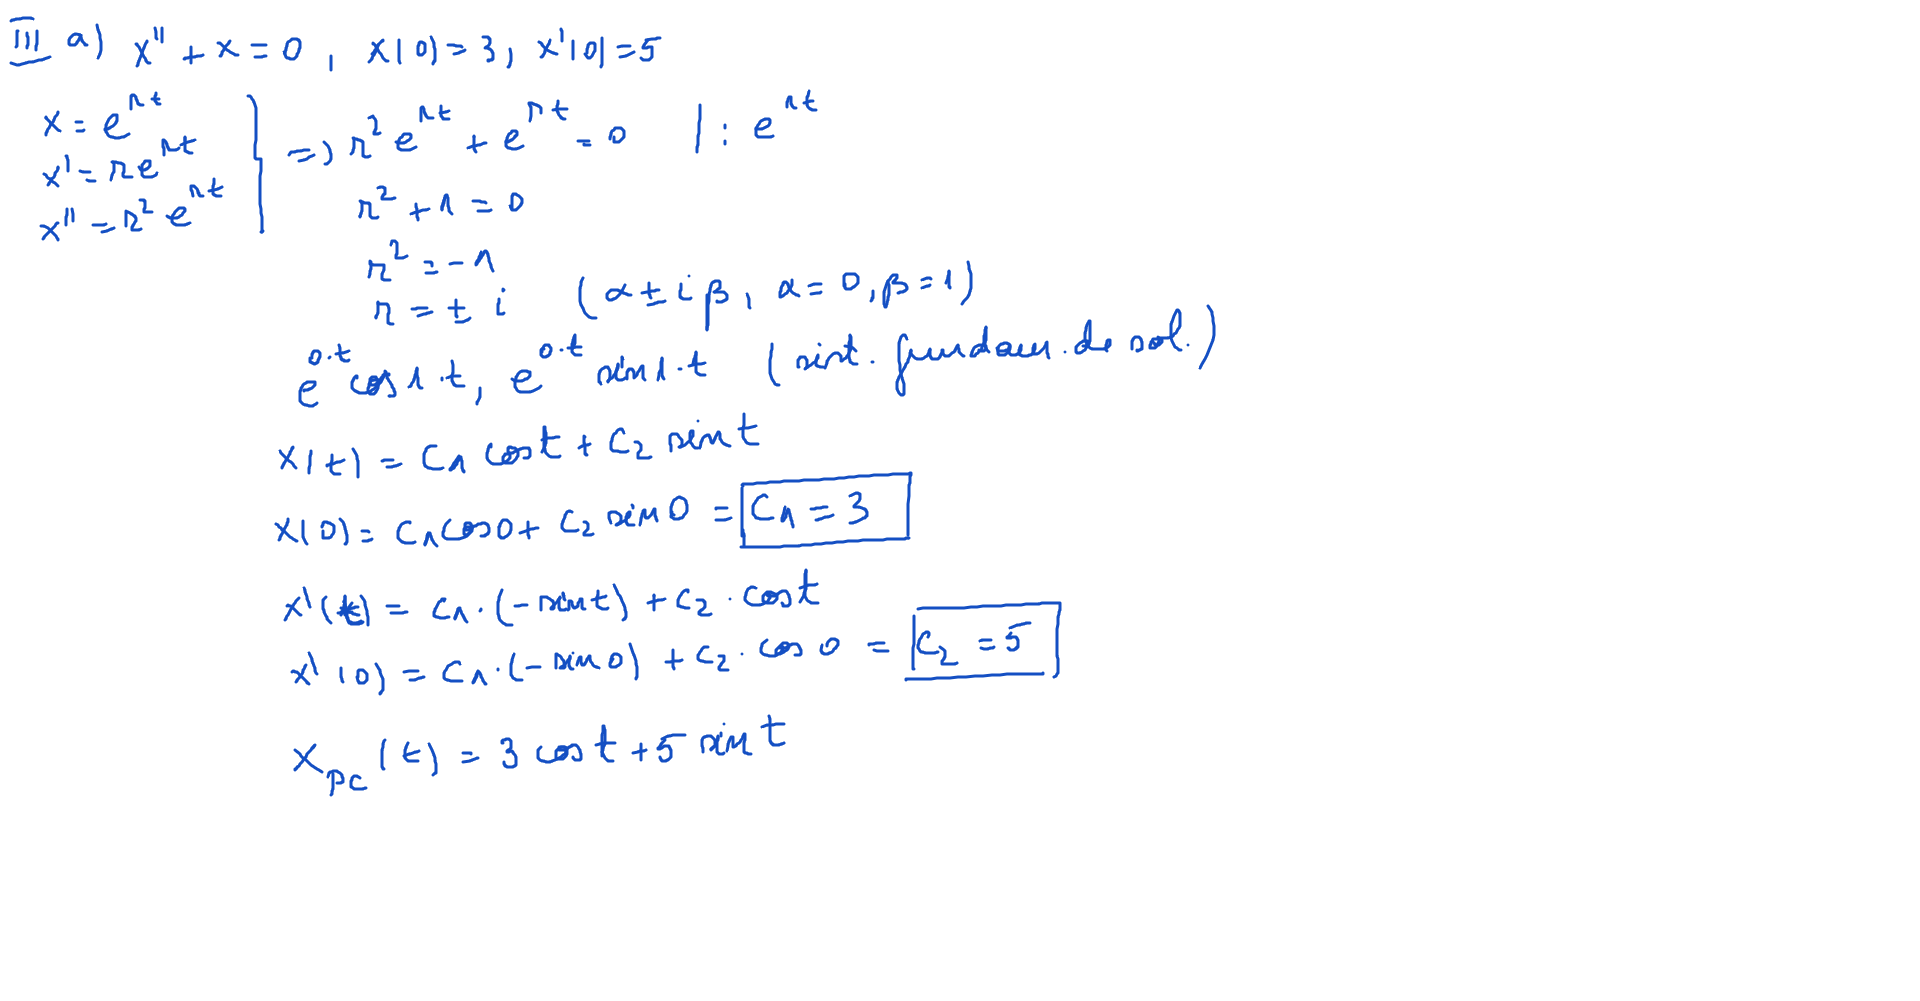 III a) x'' + x = 0, x(0) = 3, x'(0) = 5
x = e^{rt}
x' = r e^{rt}
x'' = r^2 e^{rt}
=> r^2 e^{rt} + e^{rt} = 0 | : e^{rt}
r^2 + 1 = 0
r^2 = -1
r = ± i (α ± iβ, α = 0, β = 1)
e^{0·t} cos 1·t, e^{0·t} sin 1·t (sist. fundam. de sol.)
x(t) = C_1 cos t + C_2 sin t
x(0) = C_1 cos 0 + C_2 sin 0 = C_1 = 3
x'(t) = C_1 · (- sin t) + C_2 · cos t
x'(0) = C_1 · (- sin 0) + C_2 · cos 0 = C_2 = 5
x_{pc}(t) = 3 cos t + 5 sin t